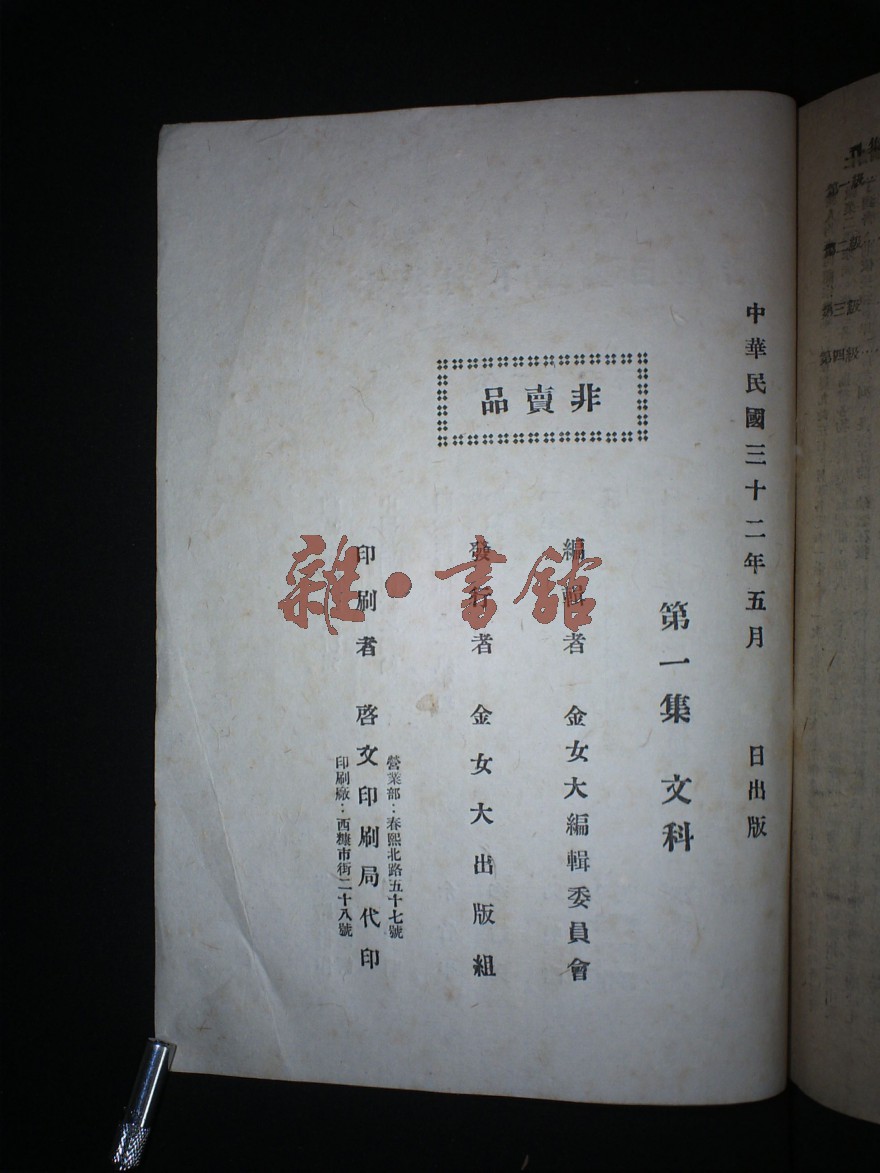 中華民國三十二年五月　日出版
第一集 文科
編輯者 金女大編輯委員會
發行者 金女大出版組
營業部：春熙北路五十七號
印刷者 啓文印刷局代印
印刷廠：西糠市街二十八號
非賣品
雜·書館
第一級
第二級
第三級
第四級……